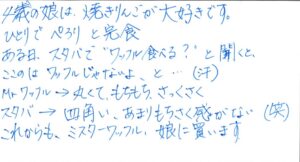 4歳の娘は、焼きりんごが大好きです。
ひとりで ぺろりと完食
ある日、スタバで“ワッフル食べる？”と聞くと、
ここのは ワッフルじゃないよ、と…(汗)
Mr.ワッフル→丸くて、もちもち、さっくさく
スタバ→四角い、あまりもちさく感がない(笑)
これからも、ミスターワッフル、娘に買います